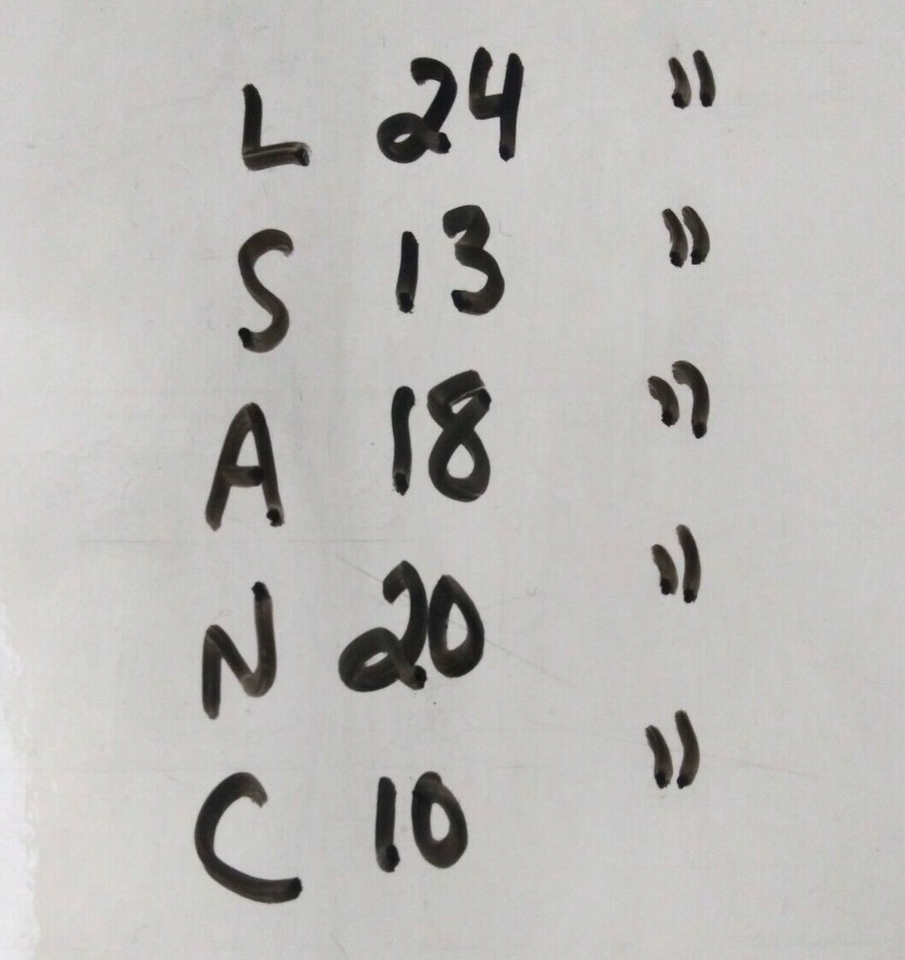 L 24 "
S 13 "
A 18 "
N 20 "
C 10 "